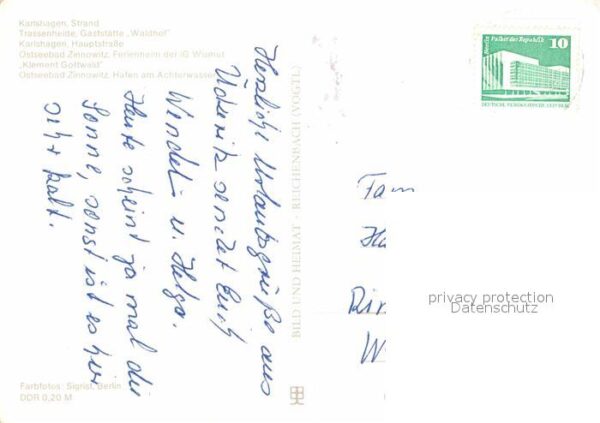 Karlshagen, Strand
Trassenheide, Gaststätte „Waldhof"
Karlshagen, Hauptstraße
Ostseebad Zinnowitz, Ferienheim der IG Wismut
„Klement Gottwald"
Ostseebad Zinnowitz, Hafen am Achterwasser
Herzliche Urlaubsgrüße aus
Ückeritz sendet Euch
Wendel u. Helga.
Heute scheint ja mal die
Sonne, sonst ist es hier
sehr kalt.
BILD UND HEIMAT · REICHENBACH (VOGTL)
Berlin Palast der Republik
10
DEUTSCHE DEMOKRATISCHE REPUBLIK
Fam
privacy protection
Datenschutz
Farbfotos: Sigrist, Berlin
DDR 0,20 M